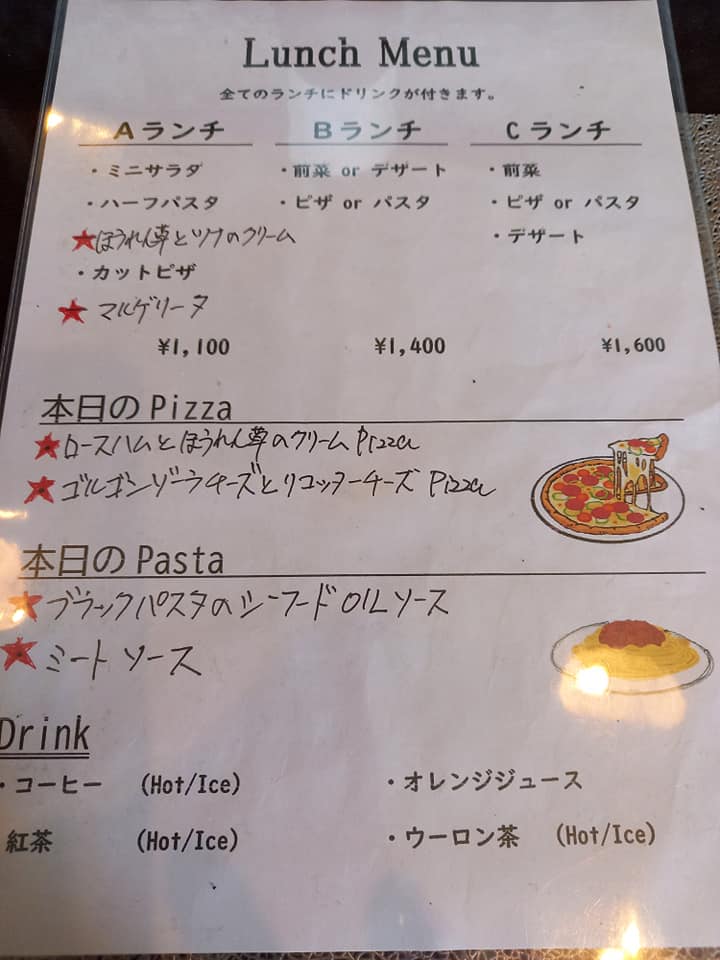 Lunch Menu
全てのランチにドリンクが付きます。
Aランチ
・ミニサラダ
・ハーフパスタ
★ほうれん草とツナのクリーム
・カットピザ
★マルゲリータ
¥1,100
Bランチ
・前菜 or デザート
・ピザ or パスタ
¥1,400
Cランチ
・前菜
・ピザ or パスタ
・デザート
¥1,600
本日のPizza
★ロースハムとほうれん草のクリームPizza
★ゴルゴンゾーラチーズとリコッターチーズ Pizza
本日のPasta
★ブラックパスタのシーフードOILソース
★ミートソース
Drink
・コーヒー (Hot/Ice)
・オレンジジュース
紅茶 (Hot/Ice)
・ウーロン茶 (Hot/Ice)